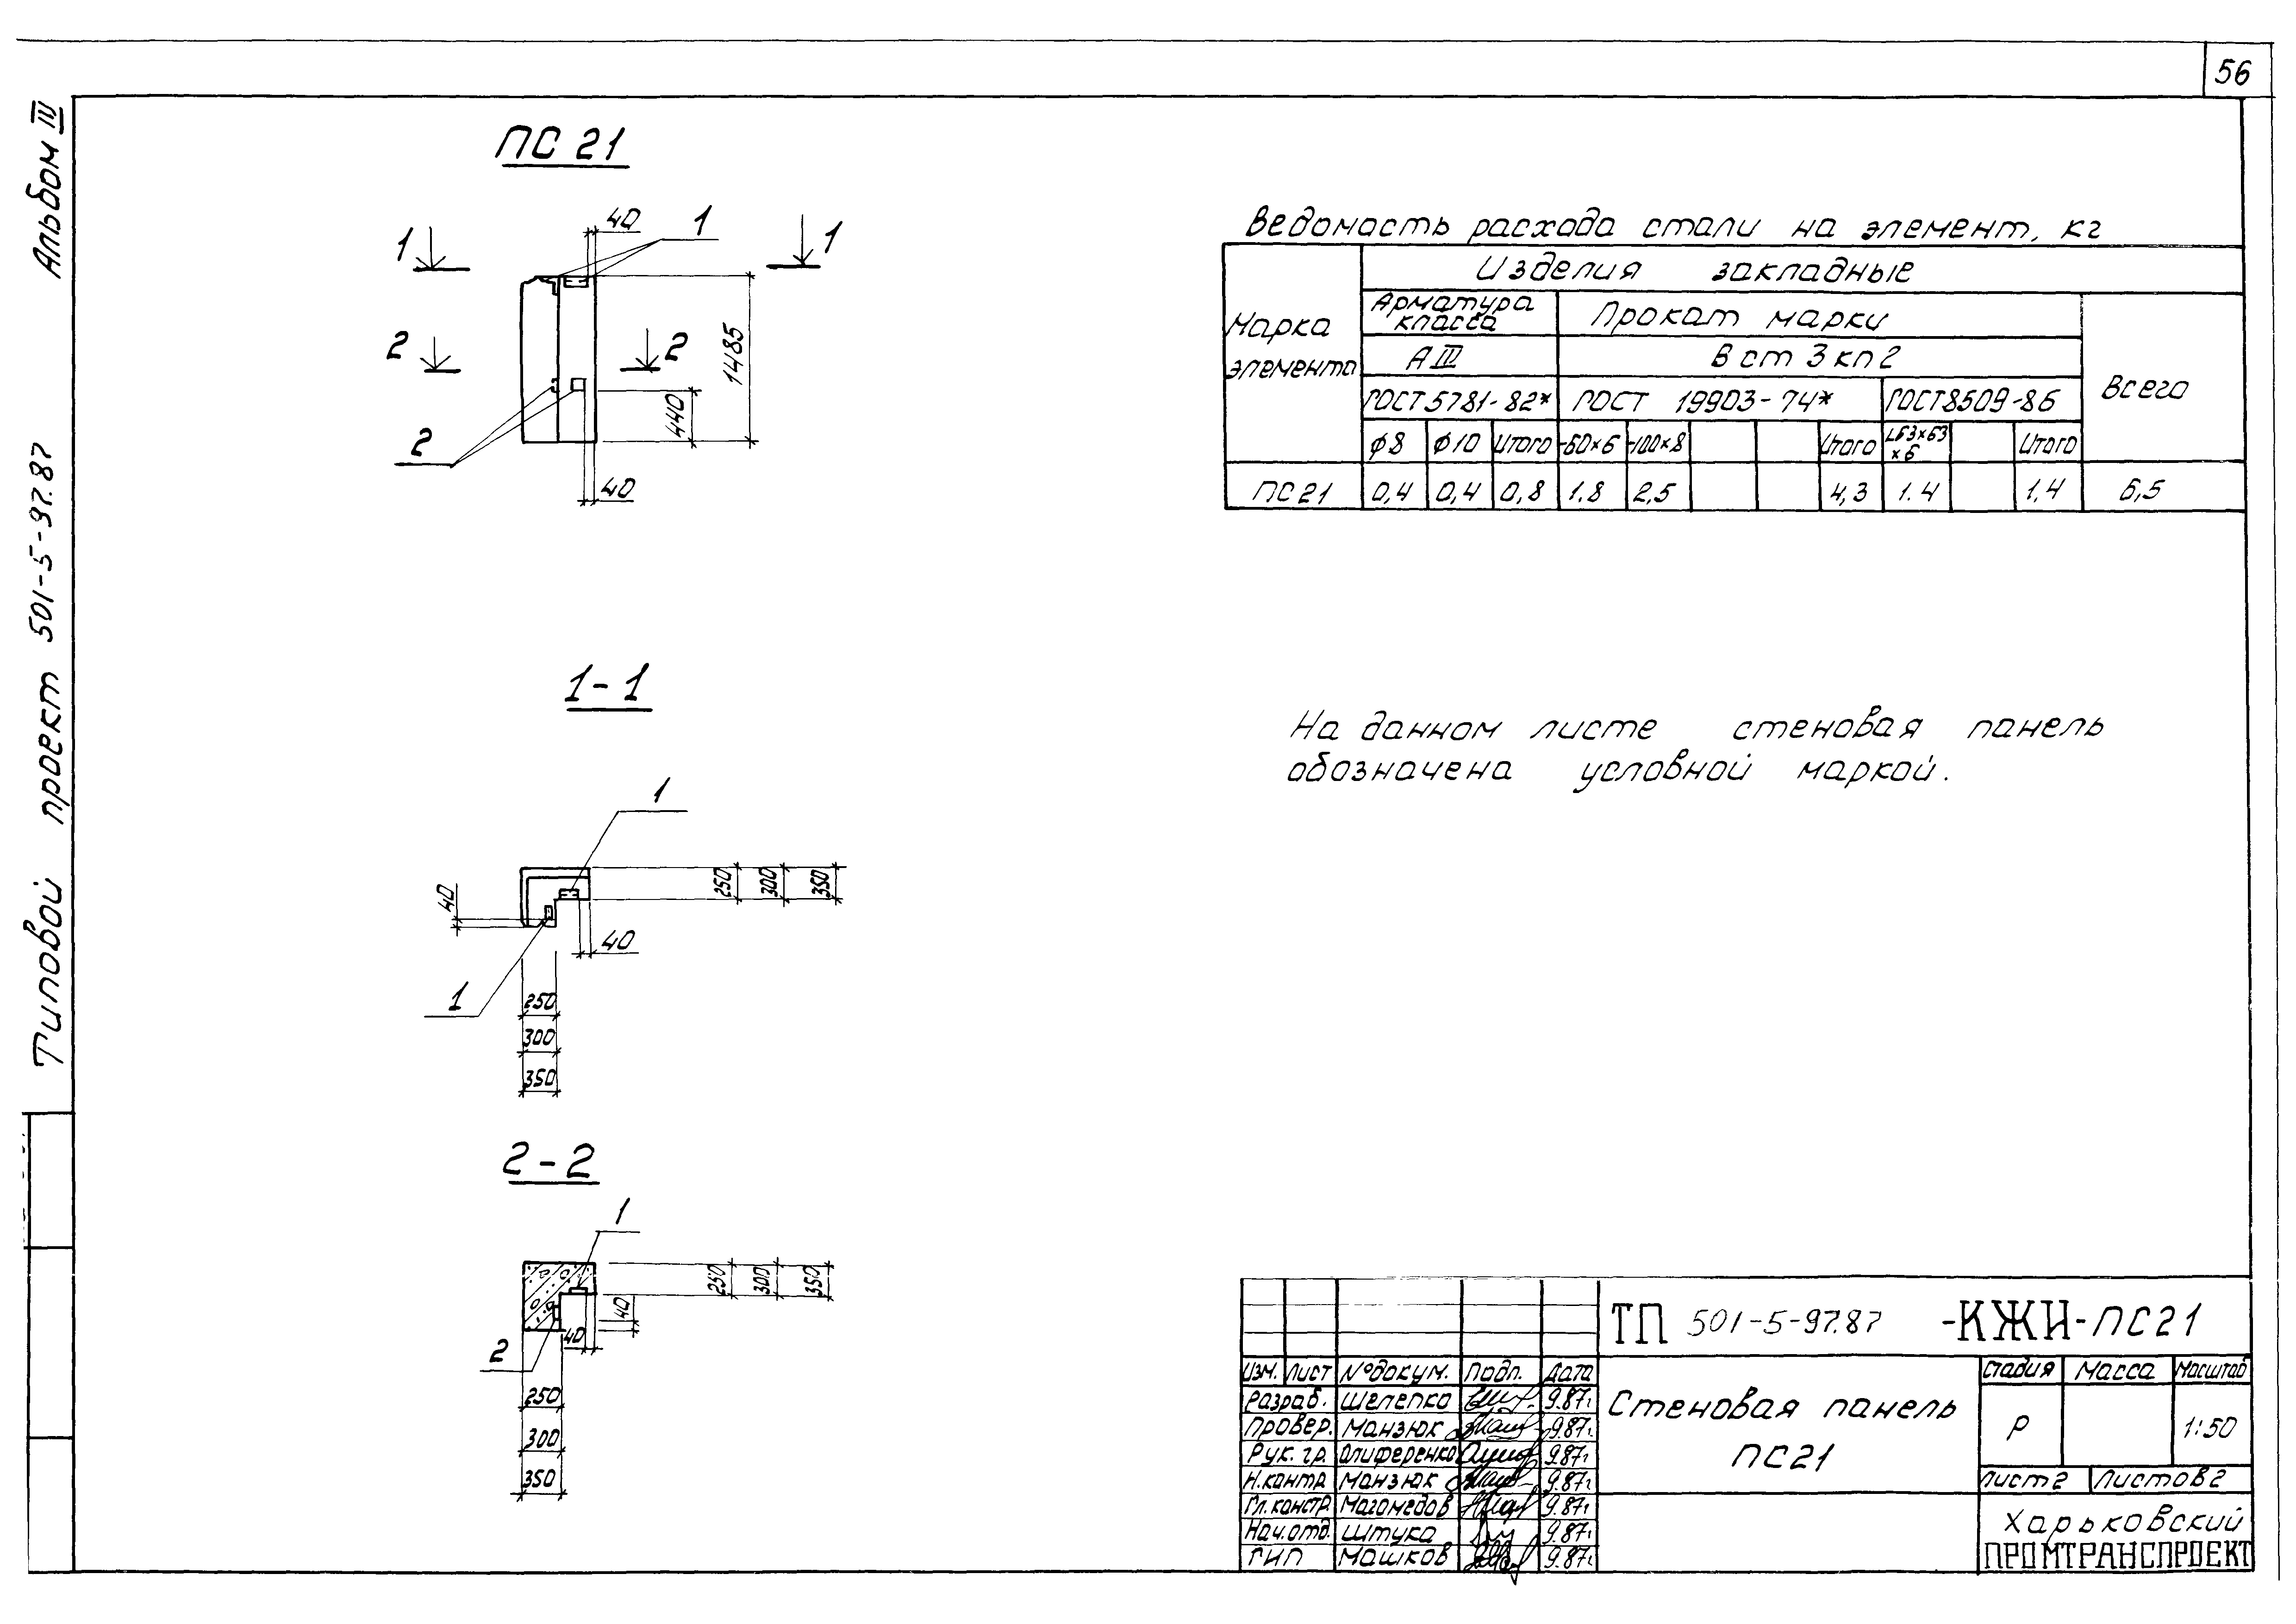 56
Альбом IV
Типовой проект 501-5-97.87
ПС 21
40
1
1
1
2
2
1485
440
2
40
1-1
1
40
250
300
350
40
1
250
300
350
2-2
1
250
300
350
40
40
2
250
300
350
Ведомость расхода стали на элемент, кг
Марка элемента
Изделия закладные
Арматура класса
Прокат марки
Всего
А III
В ст 3 кп 2
ГОСТ 5781-82*
ГОСТ 19903-74*
ГОСТ 8509-86
ф8 ф10 Итого -60×6 -100×8 Итого L63×63×6 Итого
ПС 21 0,4 0,4 0,8 1.8 2,5 4,3 1.4 1,4 6,5
На данном листе стеновая панель
обозначена условной маркой.
ТП 501-5-97.87 -КЖИ-ПС21
Изм. Лист № докум. Подп. Дата
Разраб. Шелепко 9.87г
Провер. Манзюк 9.87г
Рук. гр. Олиференко 9.87г
Н.контр. Манзюк 9.87г
Гл.констр. Магомедов 9.87г
Нач.отд. Штука 9.87г
ГИП Машков 9.87г
Стеновая панель
ПС21
Стадия Масса Масштаб
Р 1:50
Лист 2 Листов 2
Харьковский
ПРОМТРАНСПРОЕКТ